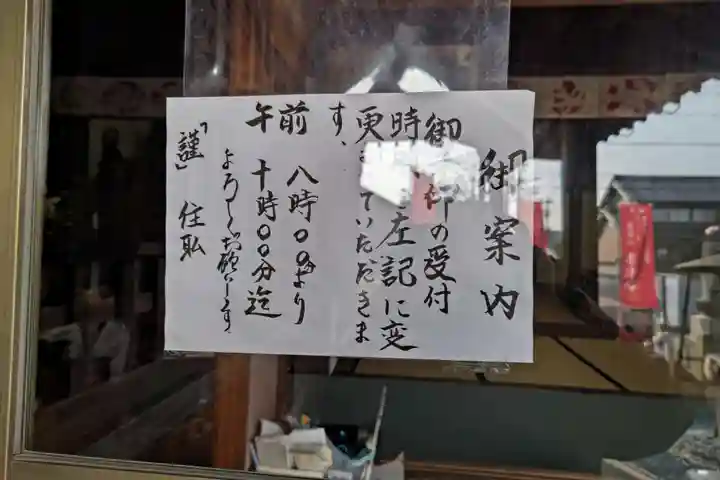 御案内
御 印の受付
時 左記に変
更 ていただきま
す、
前 八時〇〇分より
午 十時〇〇分迄
よろしくお願います、
「謹」 住職